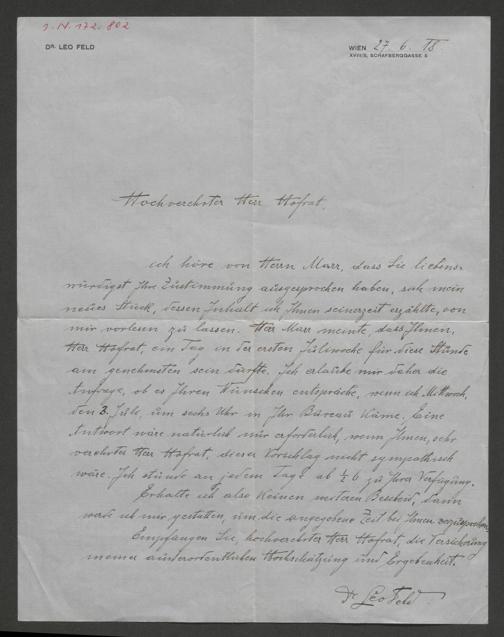 I.N. 172.802
DR. LEO FELD
WIEN 27. 6. 18
XVIII/3, SCHAFBERGGASSE 5
Hochverehrter Herr Hofrat.
ich höre von Herrn Marr, dass Sie liebens-
würdigst Ihre Zustimmung ausgesprochen haben, sich mein
neues Stück, dessen Inhalt ich Ihnen seinerzeit erzählte, von
mir vorlesen zu lassen. Herr Marr meinte, dass Ihnen,
Herr Hofrat, ein Tag in der ersten Juliwoche für diese Stunde
am genehmsten sein dürfte. Ich erlaube mir daher die
Anfrage, ob es Ihren Wünschen entspräche, wenn ich Mittwoch,
den 3. Juli, um sechs Uhr in Ihr Bureau käme. Eine
Antwort wäre natürlich nur erforderlich, wenn Ihnen, sehr
verehrter Herr Hofrat, dieser Vorschlag nicht sympathisch
wäre. Ich stünde an jedem Tage ab ½ 6 zu Ihrer Verfügung.
Erhalte ich also keinen weiteren Bescheid, dann
werde ich mir gestatten, um die angegebene Zeit bei Ihnen vorzusprechen.
Empfangen Sie, hochverehrter Herr Hofrat, die Versicherung
meiner ausserordentlichen Hochschätzung und Ergebenheit.
Dr Leo Feld